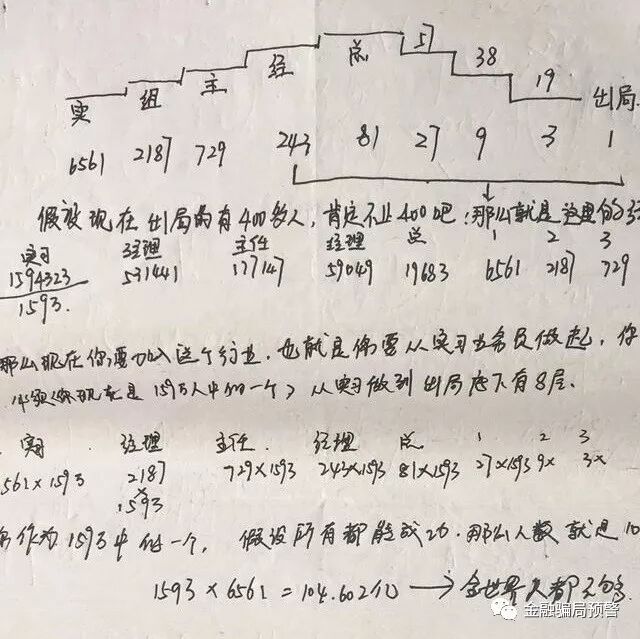 实 组 主 经 总 57 38 19 出局
6561 2187 729 243 81 27 9 3 1
假设现在出局的有400多人，肯定不止400吧，那么就是这里的
实习 经理 主任 经理 总 1 2 3
1594323 531441 177147 59049 19683 6561 2187 729
1593.
那么现在你要加入这个行业，也就是你要从实习业务员做起，你
你现在是1593万人中的一个）从实习做到出局底下有8层.
实习 经理 主任 经理 总 1 2 3
561×1593 2187×1593 729×1593 243×1593 81×1593 27×1593 9× 3×
作为1593中任一个， 假设所有都能成功.那么人数就是10
1593×6561=104.602亿 → 全世界人都不够
金融骗局预警